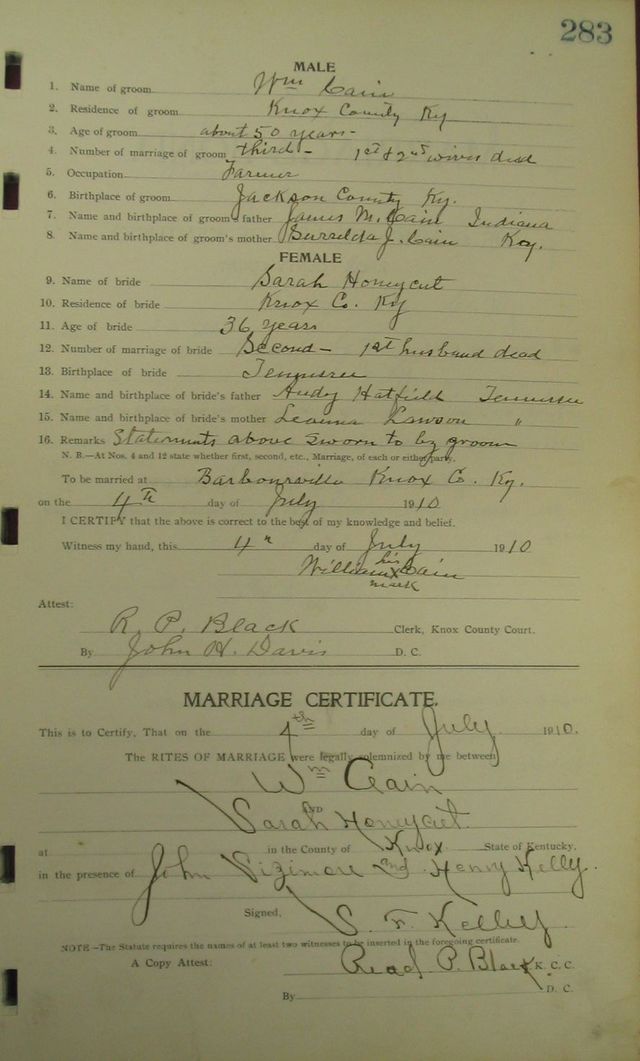 283
MALE
1. Name of groom Wm Cain
2. Residence of groom Knox County Ky
3. Age of groom about 50 years -
4. Number of marriage of groom third - 1st & 2nd wives dead
5. Occupation Farmer
6. Birthplace of groom Jackson County Ky.
7. Name and birthplace of groom's father James M. Cain Indiana
8. Name and birthplace of groom's mother Surrelda J. Cain Ky.
FEMALE
9. Name of bride Sarah Honeycut
10. Residence of bride Knox Co. Ky
11. Age of bride 36 years
12. Number of marriage of bride Second - 1st husband dead
13. Birthplace of bride Tennessee
14. Name and birthplace of bride's father Andy Hatfield Tennessee
15. Name and birthplace of bride's mother Leanna Lawson "
16. Remarks Statements above sworn to by groom
N. B.—At Nos. 4 and 12 state whether first, second, etc., Marriage, of each or either party.
To be married at Barbourville Knox Co. Ky.
on the 4th day of July 1910
I CERTIFY that the above is correct to the best of my knowledge and belief.
Witness my hand, this 4th day of July 1910
William his x mark Cain
Attest:
R. P. Black Clerk, Knox County Court.
By John H. Davis D. C.
MARRIAGE CERTIFICATE.
This is to Certify, That on the 4th day of July 1910.
The RITES OF MARRIAGE were legally solemnized by me between
Wm Cain
AND
Sarah Honeycut
at in the County of Knox State of Kentucky.
in the presence of John Sizimore and Henry Kelly.
Signed, S. F. Kelley
NOTE—The Statute requires the names of at least two witnesses to be inserted in the foregoing certificate.
A Copy Attest: Read P. Black K. C. C.
By D. C.